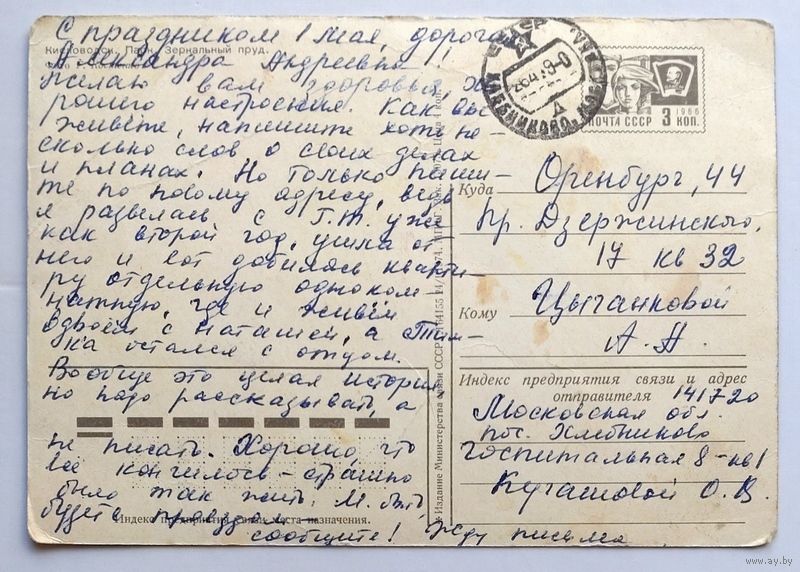 С праздником 1 Мая, дорогая
Кисловодск. Парк. Зеркальный пруд.
Александра Андреевна!
Фото
желаю вам здоровья, хо-
рошего настроения. Как вы
живёте, напишите хоть не-
сколько слов о своих делах
и планах. Но только пиши-
те по новому адресу, ведь
я развелась с Г.Т. уже
как второй год, ушла от
него и вот добилась кварти-
ру отдельную одноком-
натную, где и живём
вдвоём с Наташей, а Тим-
ка остался с отцом.
Вообще это целая история,
но надо рассказывать, а
не писать. Хорошо, что
всё кончилось - страшно
было так жить. М. быть,
будете
Индекс предприятия связи места назначения.
сообщите! Жду письма
Издание Министерства связи СССР
СССР
ХЛЕБНИКОВО МОСК
ПОЧТА СССР
1966
3 КОП.
Куда Оренбург, 44
пр. Дзержинского,
17 кв 32
Кому Цыганковой
А. А.
Индекс предприятия связи и адрес
отправителя 141720
Московская обл.
пос. Хлебниково
госпитальная 8 - кв 1
О. В.
www.ay.by